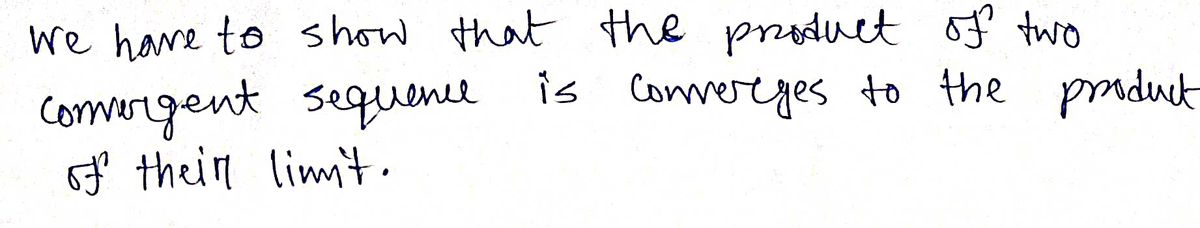 We have to show that the product of two
convergent sequence is converges to the product
of their limit.